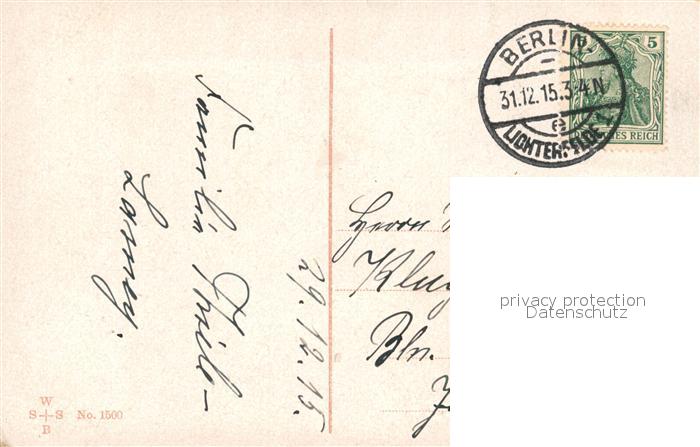 BERLIN.
31.12.15.3-4N
e
LICHTERFELDE
5
5
DEUTSCHES REICH
Familie
29.12.15.
Herrn
Klug
Bln.
privacy protection
Datenschutz
W
S+S No. 1500
B